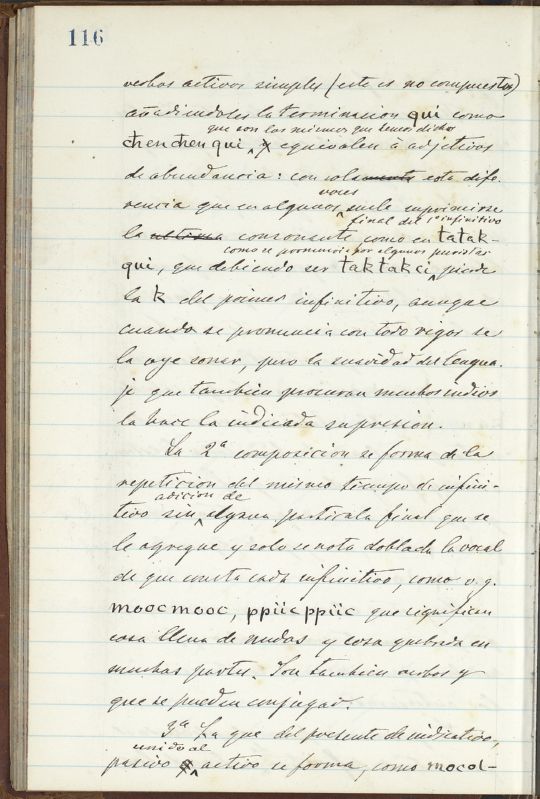 116
verbos activos simples (esto es no compuestos)
añadiendoles la terminacion qui como
que son los mismos que hemos dicho
chenchenqui, y equivalen á adjetivos
de abundancia: con solamente esta dife-
voces
rencia que en algunas suele suprimirse
final del 1º infinitivo
la ultima consonante como en tatak-
como se pronuncia por algunos puristas
qui, que debiendo ser taktakci, pierde
la k del primer infinitivo, aunque
cuando se pronuncia con todo rigor se
la oye sonar, pero la suavidad del lengua-
je que tambien procuran muchos indios
la hace la indicada supresion.
La 2ª composicion se forma de la
repeticion del mismo tiempo de infini-
adicion de
tivo sin alguna particula final que se
le agregue y solo se nota doblada la vocal
de que consta cada infinitivo, como v. g.
moocmooc, ppiicppiic que significan
cosa llena de nudos y cosa quebrada en
muchas partes. Son tambien verbos y
que se pueden conjugar.
3ª La que del presente de indicativo,
unido al
pasivo y activo se forma, como mocol-